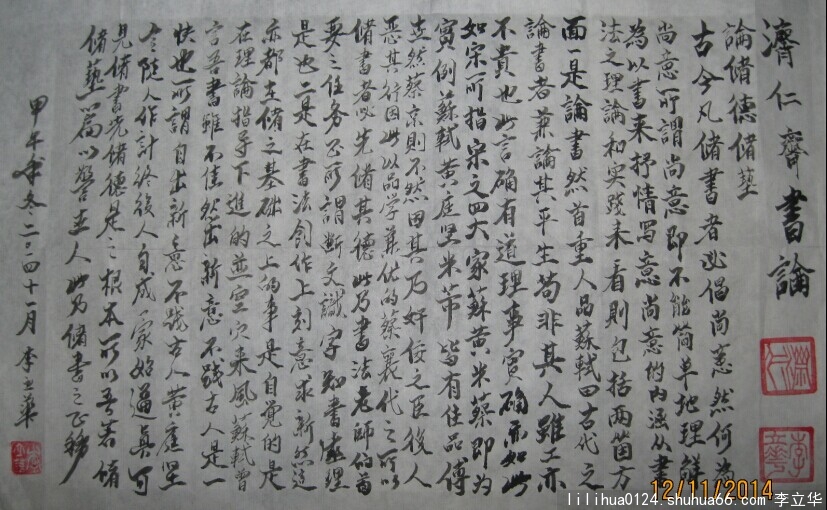 濟仁齋書論
論修德修藝
古今凡修書者必倡尚意然何為
尚意所謂尚意即不能簡单地理解
為以書来抒情寫意尚意的内涵从書
法之理論和实踐来看則包括两箇方
面一是論書然首重人品蘇軾曰古代之
論書者兼論其平生苟非其人雖工亦
不貴也此言确有道理事實确亦如此
如宋所指宋之四大家蘇黄米蔡即为
實例蘇軾黄庭坚米芾皆有佳品傳
世然蔡京則不然因其乃奸佞之臣後人
恶其行因此以品学兼优的蔡襄代之所以
修書者必先修其德此乃書法老師的首
要之任务正所謂断文識字勤書蓬理
是也二是在書法創作上刻意求新然這
亦都在修之基础之上的事是自覺的是
在理論指导下進的並空穴来風蘇軾曾
言吾書雖不佳然出新意不踐古人是一
快也所謂自出新意不践古人黄庭坚
令随人作計終後人自成一家始逼真可
見修書先修德是之根本所以吾著修
修藝篇以警世人此乃修書之正
甲午年冬二〇一四十一月李立華
12/11/2014
lilihua0124.shuhua66.com 李立华